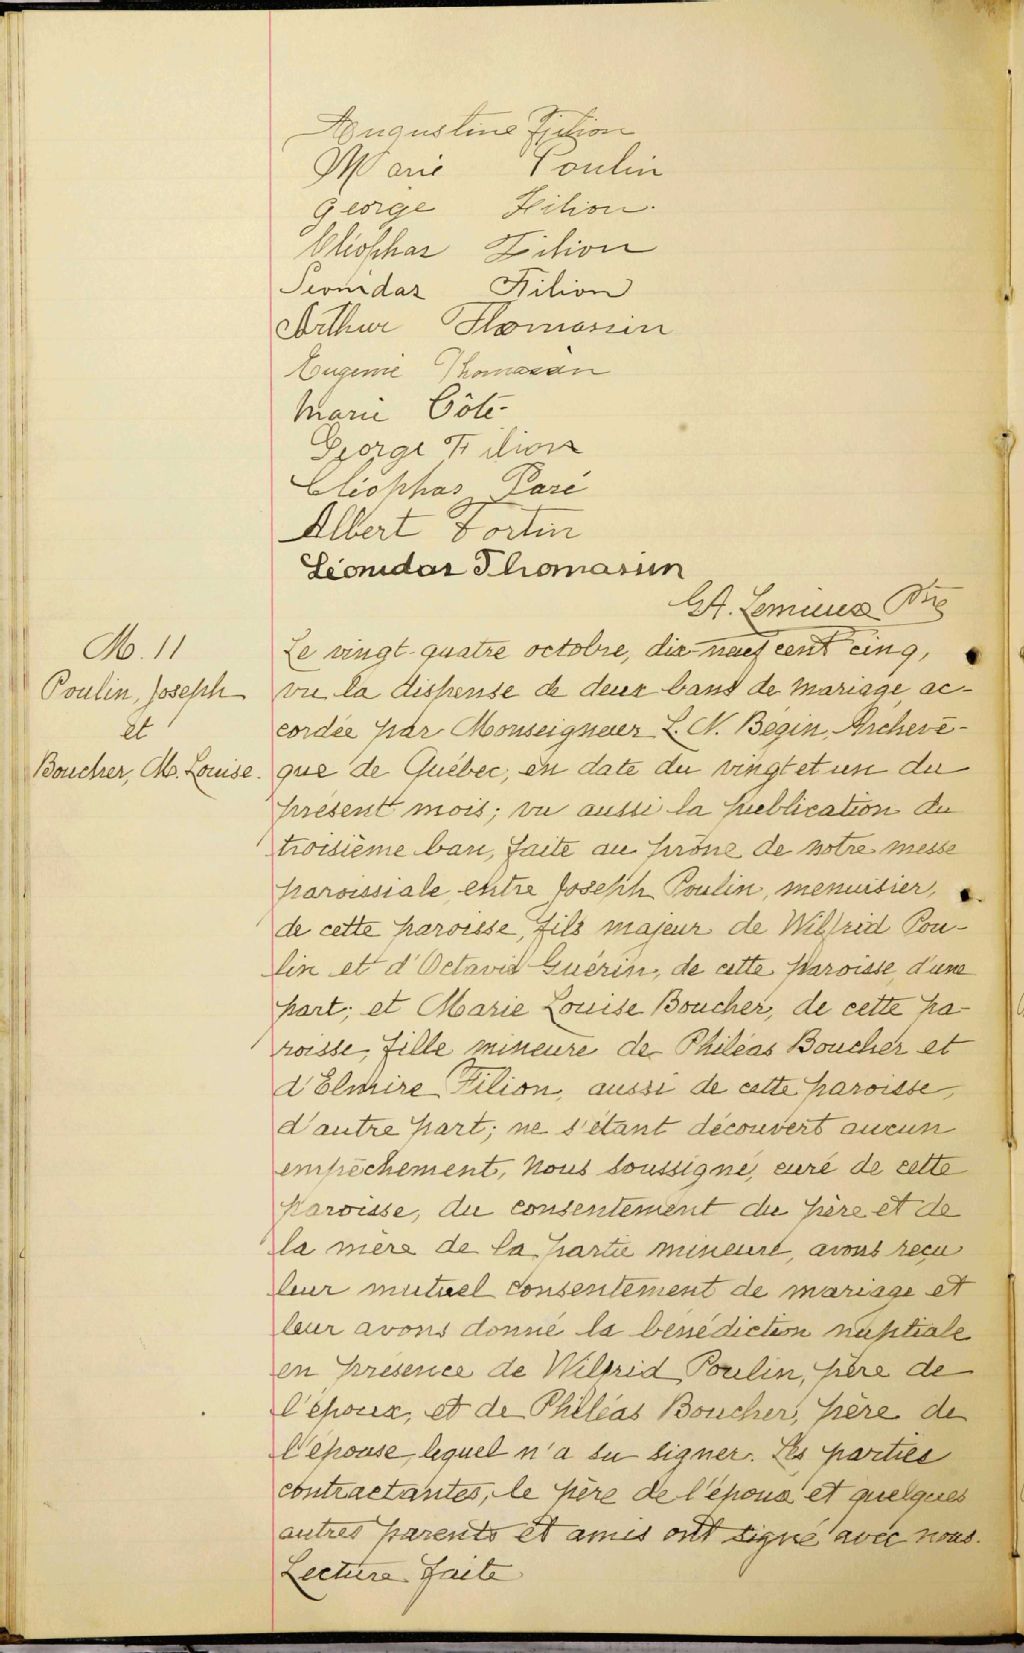 Augustine Filion
Marie Poulin
George Filion.
Cléophas Filion
Leonidas Filion
Arthur Thomassin
Eugenie Thomassin
Marie Côté
George Filion
Cléophas Paré
Albert Fortin
Léonidas Thomassin
G.A. Lemieux Ptre
M. 11
Poulin, Joseph
et
Boucher, M. Louise.
Le vingt-quatre octobre, dix-neuf cent cinq,
vu la dispense de deux bans de mariage ac-
cordée par Monseigneur L. N. Bégin, Archevê-
que de Québec, en date du vingt et un du
présent mois; vu aussi la publication du
troisième ban, faite au prône de notre messe
paroissiale, entre Joseph Poulin, menuisier,
de cette paroisse, fils majeur de Wilfrid Pou-
lin et d'Octavie Guérin, de cette paroisse, d'une
part; et Marie Louise Boucher, de cette pa-
roisse, fille mineure de Philéas Boucher et
d'Elmire Filion, aussi de cette paroisse,
d'autre part; ne s'étant découvert aucun
empêchement, Nous soussigné, curé de cette
paroisse, du consentement du père et de
la mère de la partie mineure, avons reçu
leur mutuel consentement de mariage et
leur avons donné la bénédiction nuptiale
en présence de Wilfrid Poulin, père de
l'époux, et de Philéas Boucher, père de
l'épouse, lequel n'a su signer. Les parties
contractantes, le père de l'époux et quelques
autres parents et amis ont signé avec nous.
Lecture faite